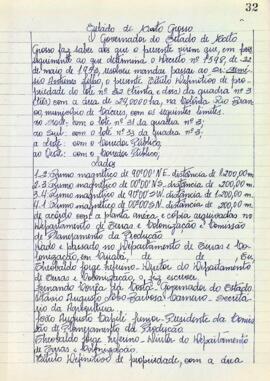 32
Estado de Mato Grosso
O Governador do Estado de Mato
Grosso faz saber aos que o presente virem que, em pros
seguimento ao que determina o Decreto nº 1598, de 22
de maio de 1953, resolveu mandar passar ao Sr.
Antônio Lobo, o presente Título Definitivo de pro-
priedade do lote nº 32 (trinta e dois) da quadra nº 3
(três) com a área de 24,0000 ha, na Colônia Rio Bran
co, município de Cáceres, com os seguintes limites.
ao Norte: com o lote nº 31 da quadra nº 3;
ao Sul: com o lote nº 33 da quadra nº 3;
a Leste: com o Corredor Público;
ao Oeste: com o Corredor Público;
Lados
1.2. Rumo magnético de 90º00'NE. distância de 1.200,00 m.
2.3. Rumo magnético de 00º00'SE. distância de 200,00 m.
3.4. Rumo magnético de 90º00'SW. distância de 1.200,00 m.
4.1. Rumo magnético de 00º00'SN. distância de 200,00 m.
de acordo com a planta anexa, e cópia arquivadas no
Departamento de Terras e Colonização e Comissão
de Planejamento da Produção.
Dado e passado no Departamento de Terras e Co-
lonização, em Cuiabá, de de Eu,
Theobaldo Jorge Diretor do Departamento
de Terras e Colonização, o fiz escrever
Fernando Corrêa da Costa - Governador do Estado
Mário Augusto Lobo Barbosa Carneiro - Secretá-
rio da Agricultura
João Augusto Capilé Junior - Presidente da Comis
são de Planejamento da Produção.
Theobaldo Jorge - Diretor do Departamento
de Terras e Colonização.
Título Definitivo de propriedade, com a área